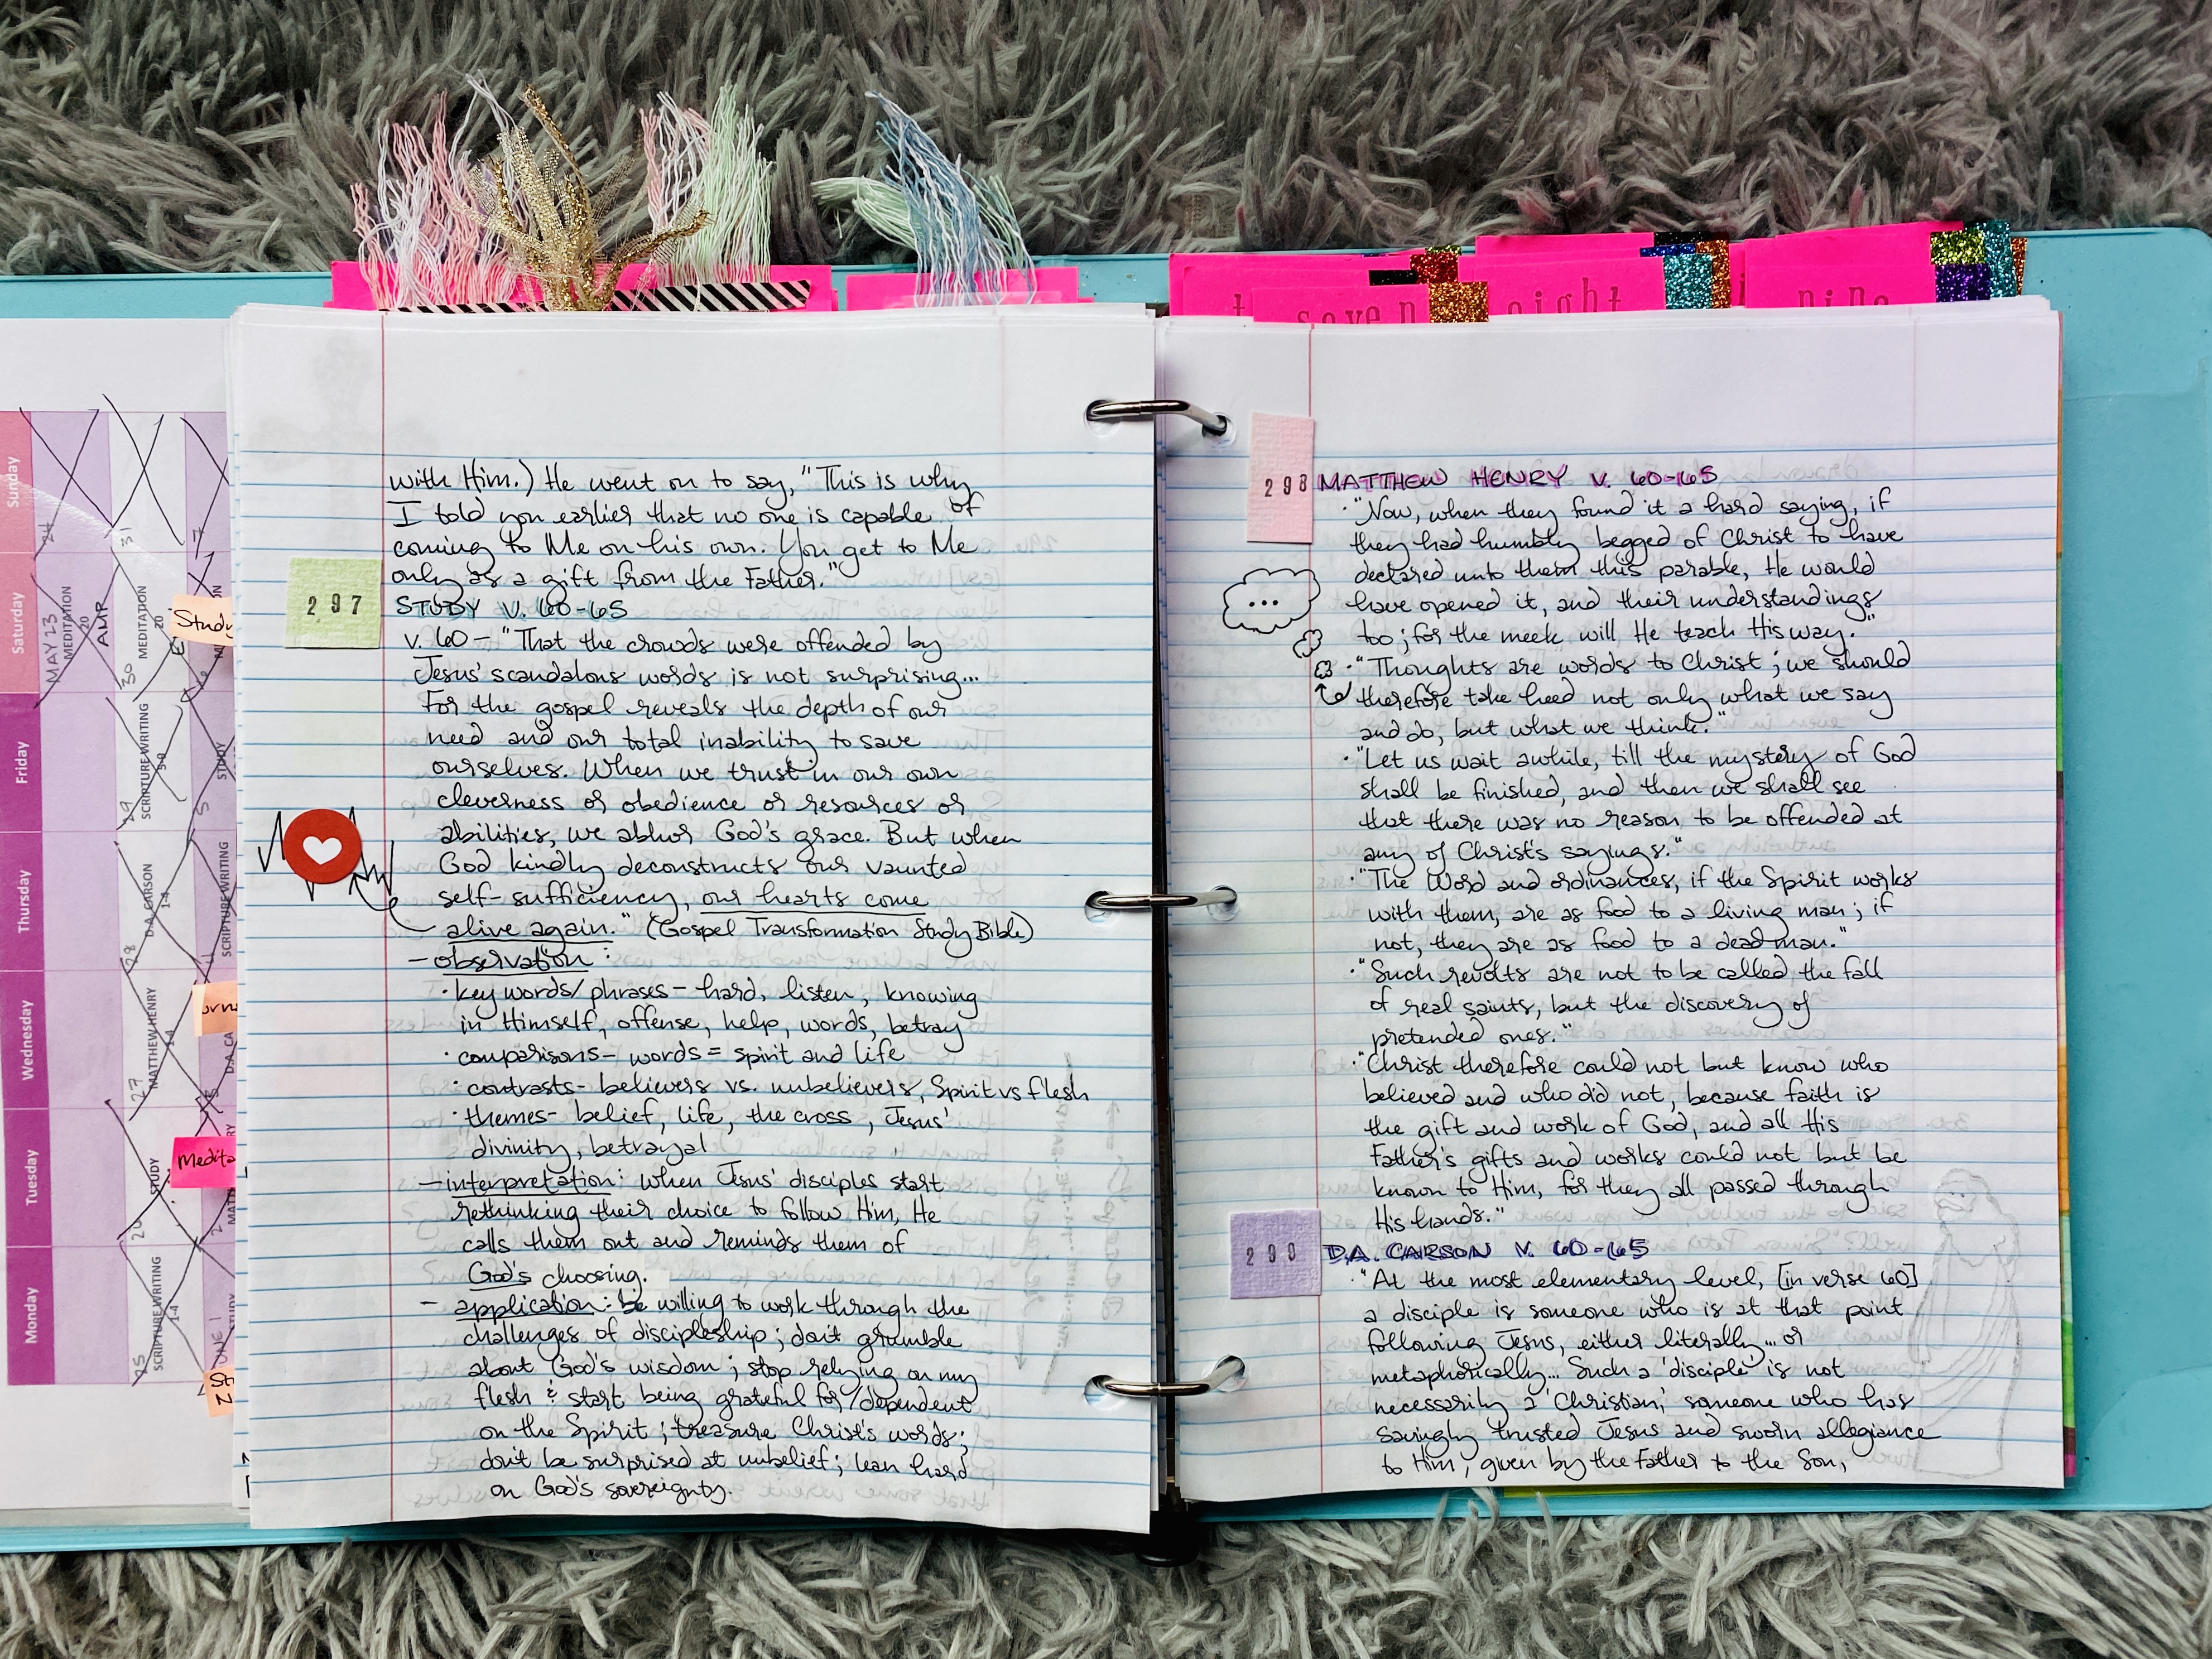 with Him.) He went on to say, "This is why
I told you earlier that no one is capable of
coming to Me on his own. You get to Me
only as a gift from the Father."
297
STUDY V. 60-65
v. 60 - "That the crowds were offended by
Jesus' scandalous words is not surprising...
For the gospel reveals the depth of our
need and our total inability to save
ourselves. When we trust in our own
cleverness or obedience or resources or
abilities, we abhor God's grace. But when
God kindly deconstructs our vaunted
self-sufficiency, our hearts come
alive again." (Gospel Transformation Study Bible)
- observation:
· key words/phrases - hard, listen, knowing
in Himself, offense, help, words, betray
· comparisons - words = spirit and life
· contrasts - believers vs. unbelievers, Spirit vs flesh
· themes - belief, life, the cross, Jesus'
divinity, betrayal
- interpretation: when Jesus' disciples start
rethinking their choice to follow Him, He
calls them out and reminds them of
God's choosing.
- application: be willing to work through the
challenges of discipleship; don't grumble
about God's wisdom; stop relying on my
flesh & start being grateful for/dependent
on the Spirit; treasure Christ's words;
don't be surprised at unbelief; lean hard
on God's sovereignty.
298
MATTHEW HENRY V. 60-65
· "Now, when they found it a hard saying, if
they had humbly begged of Christ to have
declared unto them this parable, He would
have opened it, and their understandings
too; for the meek will He teach His way."
...
· "Thoughts are words to Christ; we should
therefore take heed not only what we say
and do, but what we think."
· "Let us wait awhile, till the mystery of God
shall be finished, and then we shall see
that there was no reason to be offended at
any of Christ's sayings."
· "The Word and ordinances, if the Spirit works
with them, are as food to a living man; if
not, they are as food to a dead man."
· "Such revolts are not to be called the fall
of real saints, but the discovery of
pretended ones."
· "Christ therefore could not but know who
believed and who did not, because faith is
the gift and work of God, and all His
Father's gifts and works could not but be
known to Him, for they all passed through
His hands."
299
D.A. CARSON V. 60-65
· "At the most elementary level, [in verse 60]
a disciple is someone who is at that point
following Jesus, either literally... or
metaphorically... Such a 'disciple' is not
necessarily a 'Christian,' someone who has
savingly trusted Jesus and sworn allegiance
to Him, given by the Father to the Son,
seven
eight
nine
Sunday
Saturday
Friday
Thursday
Wednesday
Tuesday
Monday
24
31
7
MAY 23
MEDITATION
20
AMP
30
MEDITATION
20
6
Study
29
SCRIPTURE WRITING
5-8
5
STUDY
28
D.A. CARSON
1-4
SCRIPTURE WRITING
27
MATTHEW HENRY
1-4
D.A. CA
26
STUDY
2
Medita
25
SCRIPTURE WRITING
1-4
JUNE 1
STUDY